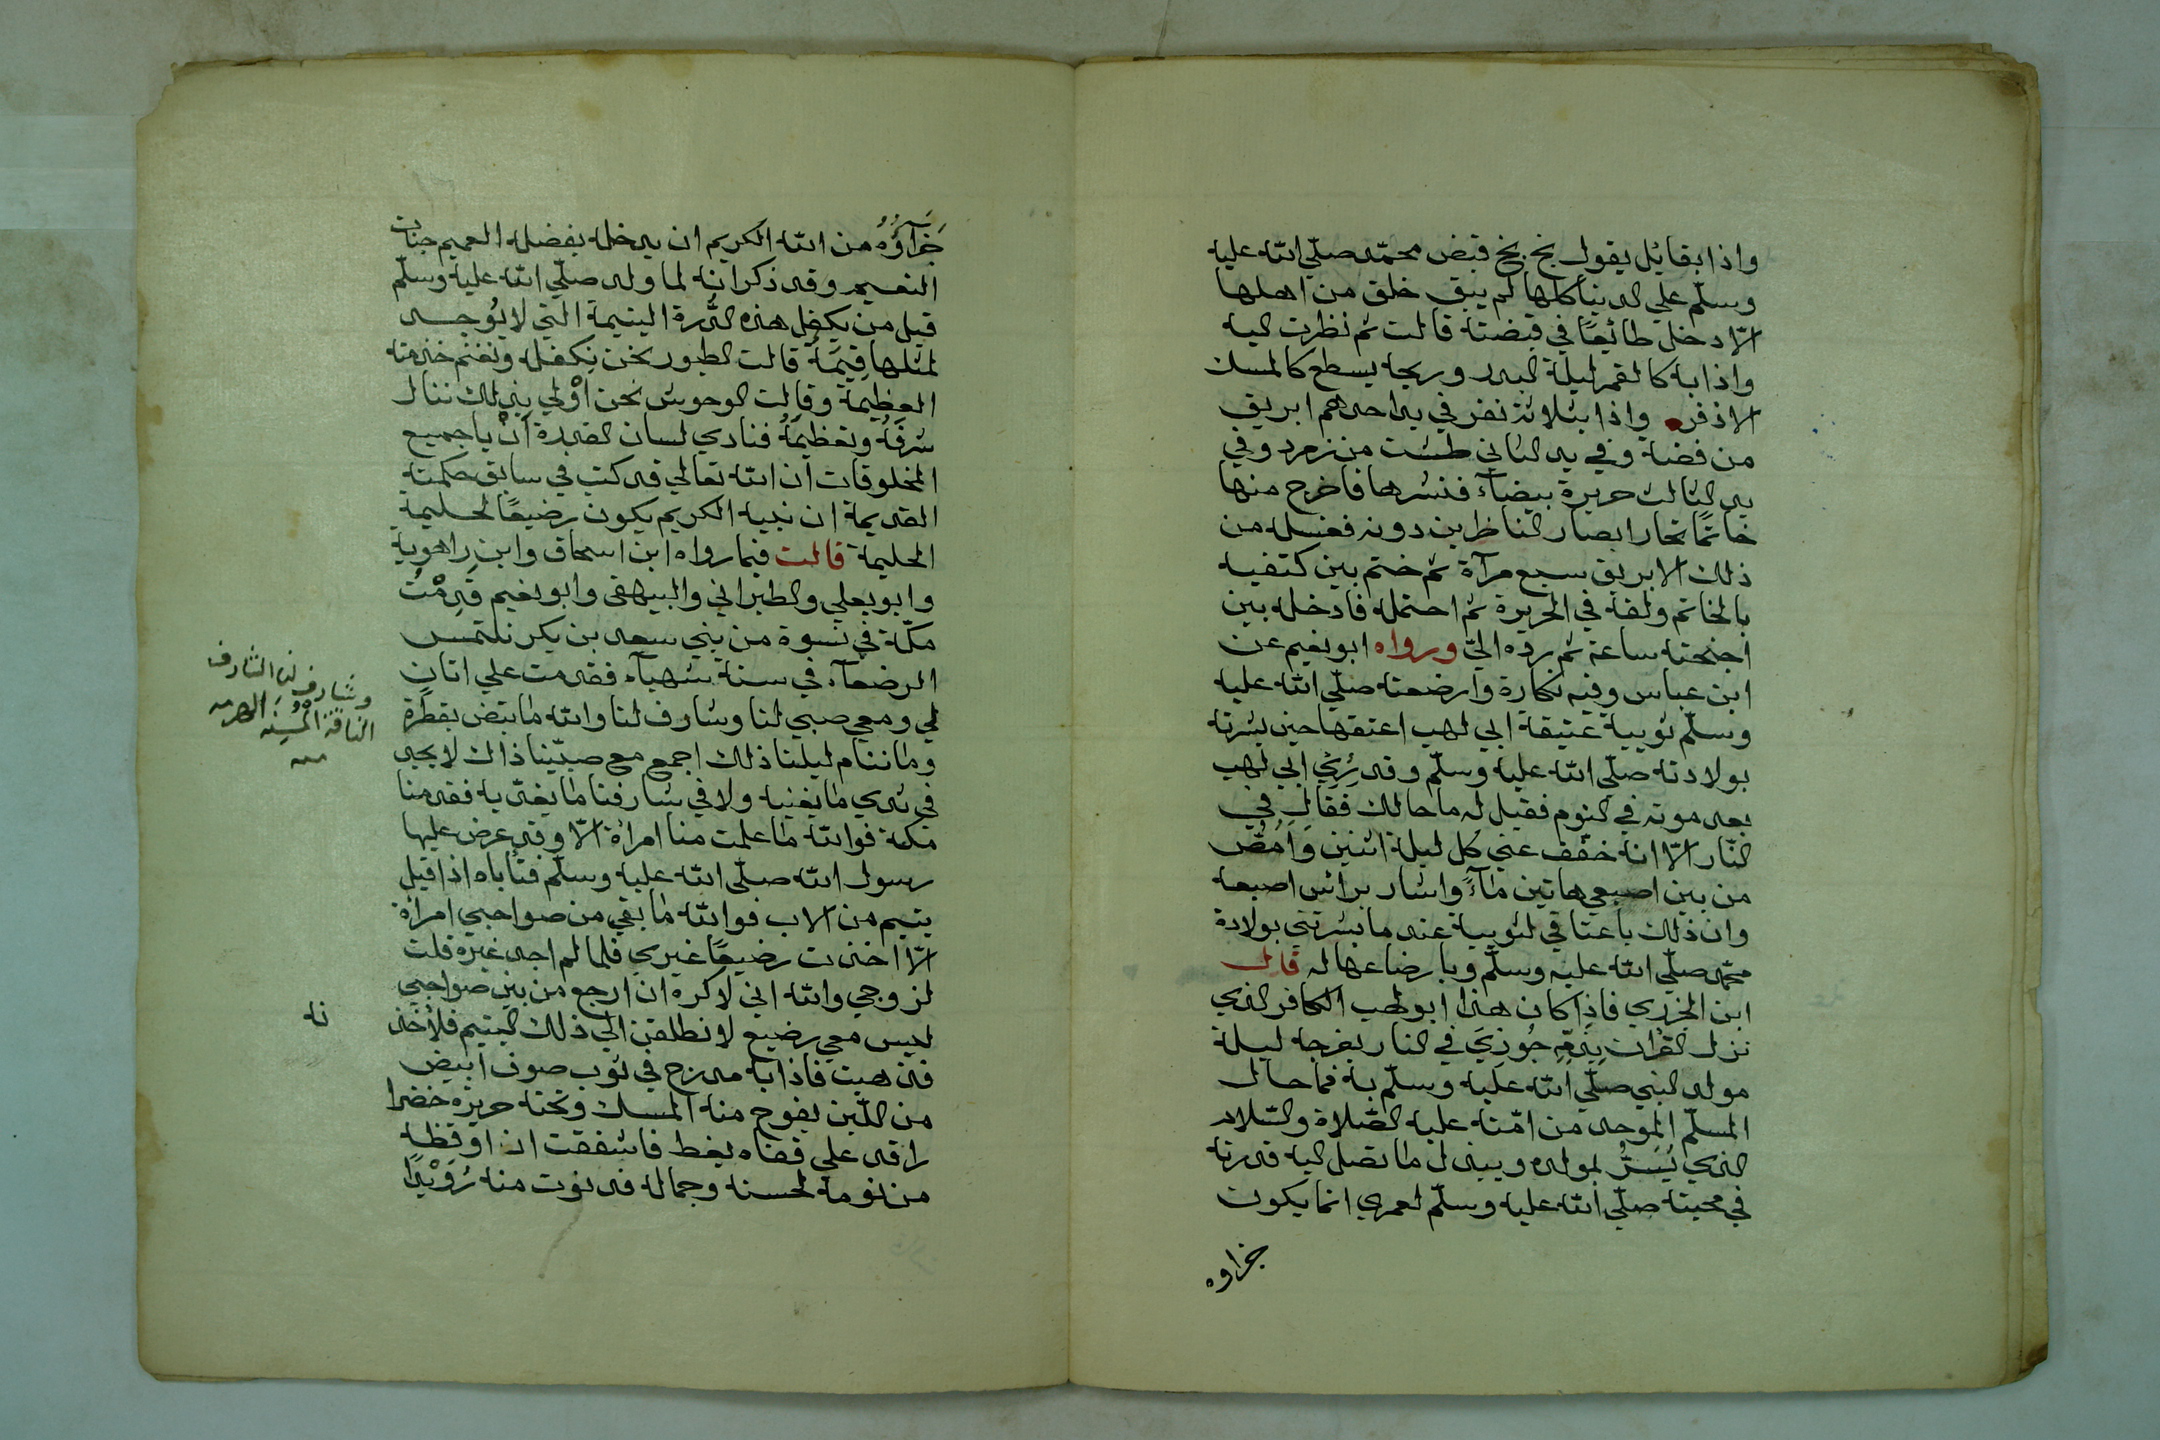 واذا بقائل يقول بخ بخ قبض محمد صلّي الله عليه
وسلّم علي الدنيا كلها لم يبق خلق من اهلها
الّا دخل طائعًا في قبضته قالت ثم نظرت اليه
واذا به كالقمر ليلة البدر وريحه يسطع كالمسك
الاذفر واذا بثلاثة نفر في يد احدهم ابريق
من فضة وفي يد الثاني طشت من زمرد وفي
يد الثالث حريرة بيضآء فنشرها فاخرج منها
خاتمًا تحار ابصار الناظرين دونه فغسله من
ذلك الابريق سبع مرآة ثم ختم بين كتفيه
بالخاتم ولفه في الحريرة ثم احتمله فادخله بين
اجنحته ساعة ثم رده اليّ ورواه ابو نعيم عن
ابن عباس وفيه نكارة وارضعته صلّي الله عليه
وسلّم ثويبة عتيقة ابي لهب اعتقها حين بشرته
بولادته صلّي الله عليه وسلّم وقد رُئِيَ ابي لهب
بعد موته في النوم فقيل له ما حالك فقال في
النّار الّا انه خفّف عني كل ليلة اثنين وَامُصُّ
من بين اصبعي هاتين مآءً واشار برائس اصبعه
وان ذلك باعتاقي لثويبة عند ما بشرتني بولادة
محمد صلّي الله عليه وسلّم وبارضاعها له قال
ابن الجزري فاذا كان هذا ابو لهب الكافر الذي
نزل القرات بِذَمِّهِ جُوزِيَ في النار بفرحه ليلة
مولد النبي صلّي الله عليه وسلّم به فما حال
المسلّم الموحد من امّته عليه الصّلاة والسّلام
الذي يُسَرُّ بمولده ويبذل ما تصل اليه قدرته
في محبته صلّي الله عليه وسلّم لعمري انما يكون
جزاوه
جَزَآؤُهُ من الله الكريم ان يدخله بفضله العميم جنات
النعيم وقد ذكر انه لما ولد صلّي الله عليه وسلّم
قيل من يكفل هذه الدّرة اليتيمة التي لا يُوجد
لمثلها قِيمَةُ قالت الطيور نحن نكفله ونغنم خدمته
العظيمة وقالت الوحوش نحن اوْلي بذلك ننال
شرفَهُ وتعظيمَهُ فنادي لسان القدرة انْ يا جميع
المخلوقات ان الله تعالي قد كتب في سابق حكمته
القديمة ان نبيه الكريم يكون رضيعًا لحليمة
الحليمة قالت فيما رواه ابن اسحاق وابن راهوية
وابو يعلي والطبراني والبيهقى وابو نعيم قَدِمْتُ
مكّة في نسوة من بني سعد بن بكر نلتمس
الرضعآء في سنة شهبآء فقدمت علي اتان
لي ومعي صبي لنا وشارف لنا والله ما تبض بقطرة
وما ننام ليلنا ذلك اجمع مع صبيّنا ذاك لا يجد
في ثدي ما يغنيه ولا في شارفنا ما يغذّيه فقدمنا
مكة فوالله ما علمت منا امراة الّا وقد عرض عليها
رسول الله صلّي الله عليه وسلّم فتأباه اذا قيل
يتيم من الاب فوالله ما بقي من صواحبي امراة
الّا اخذت رضيعًا غيري فلما لم اجد غيره قلت
لزوجي والله اني لاكره ان ارجع من بين صواحبي
ليس معي رضيع لانطلقن الي ذلك اليتيم فلأخذ
نه
فذهبت فاذا به مدرج في ثوب صوف ابيض
من اللّبن يفوح منه المسك وتحته حريره خضرا
راقد علي قفاه يغط فاشفقت ان اوقظه
من نومه لحسنه وجماله فدنوت منه رُوَيْدًا
وشارف لنا الشارف
الناقة المُسِنّه الهرمه